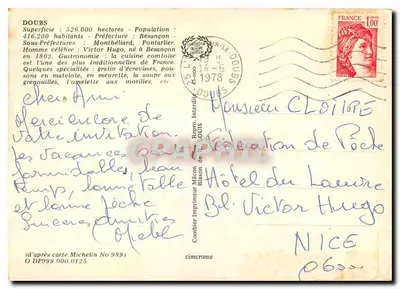 DOUBS
Superficie : 526.000 hectares - Population :
416.200 habitants - Préfecture : Besançon -
Sous-Préfectures : Montbéliard, Pontarlier,
Homme célèbre : Victor Hugo, né à Besançon
en 1802. Gastronomie : la cuisine comtoise
est l'une des plus traditionnelles de France.
Quelques spécialités : gratin d'écrevisses, poissons en matelote, en meurette, la soupe aux
grenouilles, l'omelette aux morilles, etc.
DOUBS
14-6
1978
DOUBS
FRANCE
1,00
Cher Ami
Merci encore de
votre invitation.
les vacances
formidables, beau
temps, bonne table
et bonne pêche
Sincères amitiés
(d'après carte Michelin No 989)
O DP999 000.0125
Combier Imprimeur Mâcon
Repro. Interdite
cimcrome
Monsieur
Fédération de Pêche
Hôtel du Louvre
Bl. Victor Hugo
NICE
06000